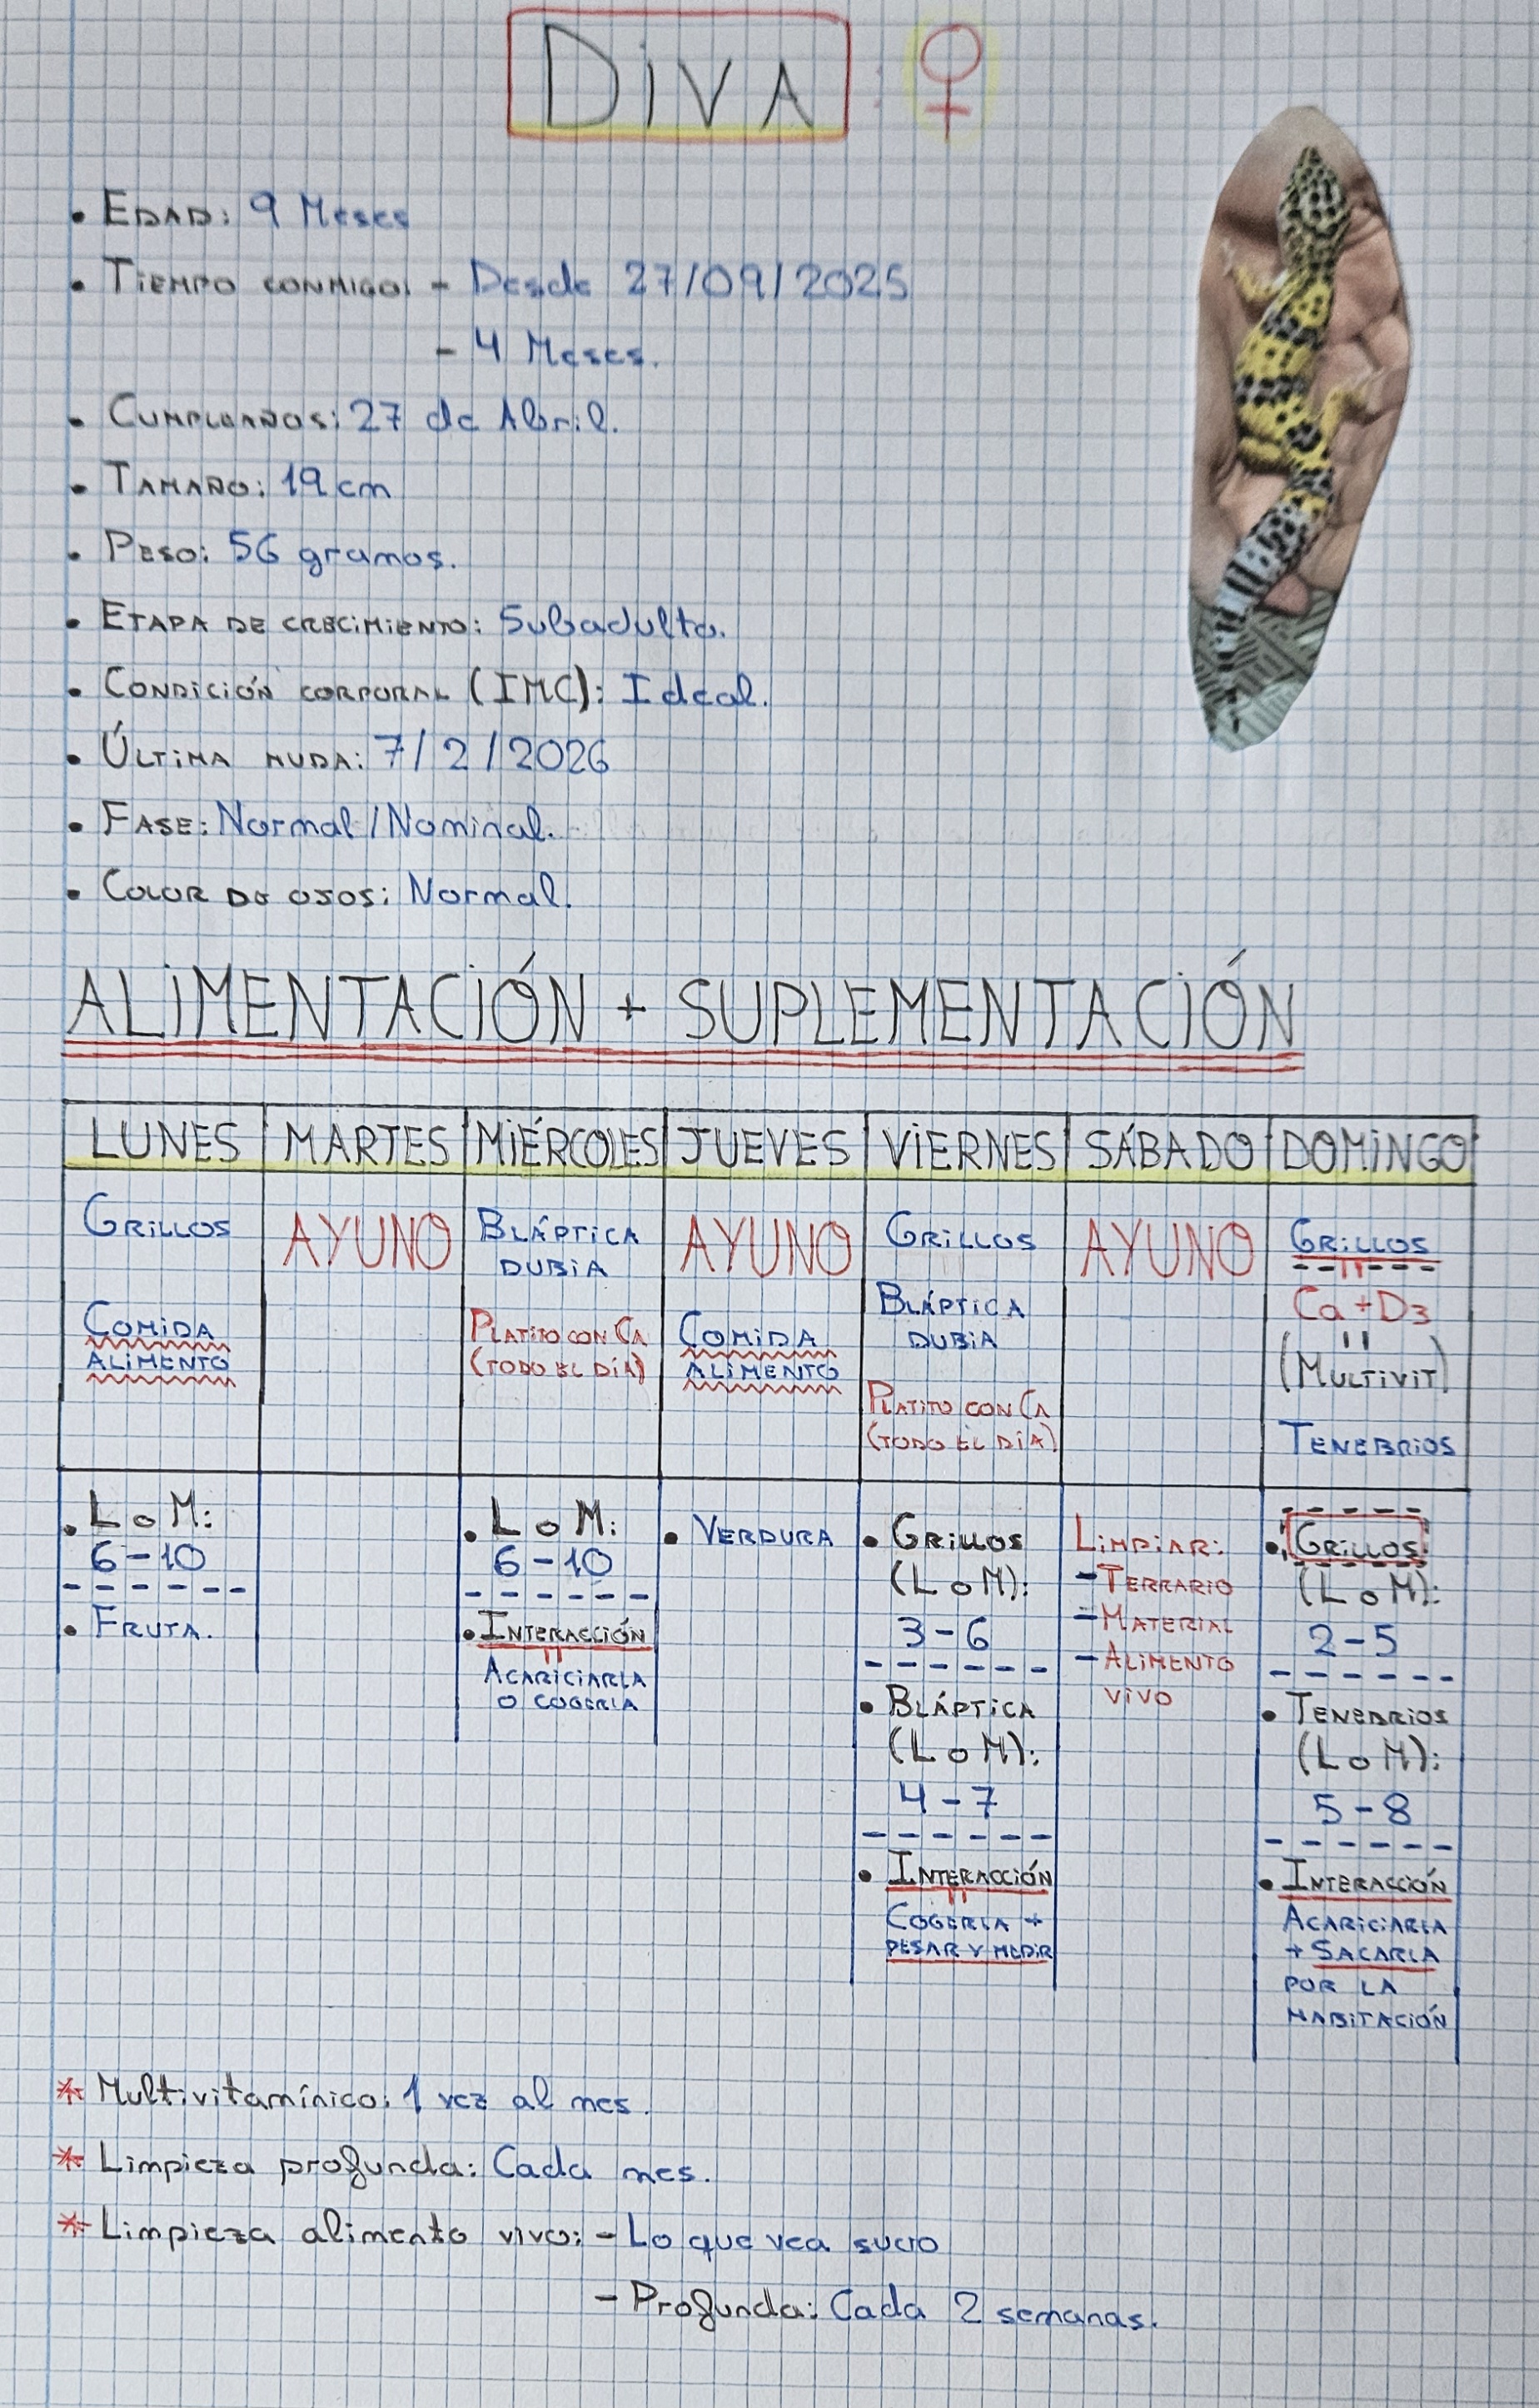 DiVA: ♀
• EDAD: 9 Meses
• TiEMPO CONMIGO: - Desde 27/09/2025
- 4 Meses.
• CUMPLEAÑOS: 27 de Abril.
• TAMAÑO: 19 cm
• PESO: 56 gramos.
• ETAPA DE CRECiMiENTO: Subadulta.
• CONDICIÓN CORPORAL (IMC): Ideal.
• ÚLTiMA MUDA: 7/2/2026
• FASE: Normal/Nominal.
• COLOR DE OJOS: Normal.
ALiMENTACiÓN + SUPLEMENTACiÓN
LUNES MARTES MiÉRCOLES JUEVES ViERNES SÁBADO DOMiNGO
GRiLLOS
COMiDA
ALiMENTO
• L o M:
6-10
• FRUTA.
AYUNO
BLÁPTiCA
DUBiA
PLATiTO CON CA
(TODO EL DÍA)
• L o M:
6-10
• INTERACCIÓN
ACARICIARLA
O COGERLA
AYUNO
COMiDA
ALiMENTO
• VERDURA
GRiLLOS
BLÁPTiCA
DUBiA
PLATiTO CON CA
(TODO EL DÍA)
• GRiLLOS
(L o M):
3-6
• BLÁPTiCA
(L o M):
4-7
• INTERACCIÓN
COGERLA +
PESAR Y MEDiR
AYUNO
LiMPiAR:
- TERRARiO
- MATERiAL
- ALiMENTO
ViVO
GRiLLOS
Ca + D3
(MULTiViT)
TENEBRiOS
• GRiLLOS
(L o M):
2-5
• TENEBRiOS
(L o M):
5-8
• INTERACCIÓN
ACARiCiARLA
+ SACARLA
POR LA
HABiTACiÓN
* Multivitamínico: 1 vez al mes.
* Limpieza profunda: Cada mes.
* Limpieza alimento vivo: - Lo que vea sucio
- Profunda: Cada 2 semanas.